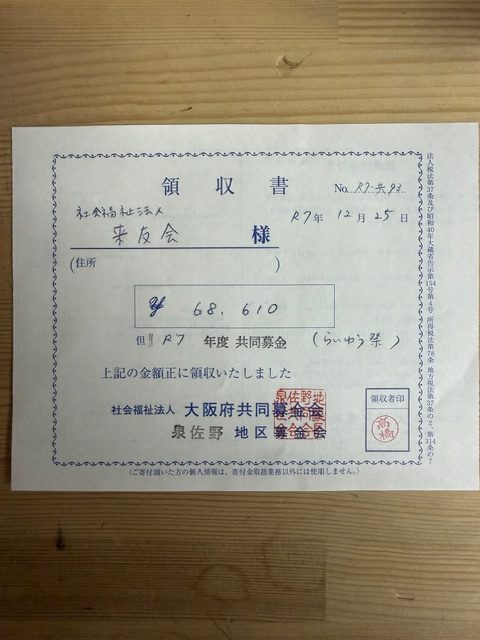 領収書
No. R7-共93
R7年 12月 25日
社会福祉法人
来友会 様
(住所 )
¥ 68.610
但 R7 年度 共同募金 (らいゆう祭)
上記の金額正に領収いたしました
社会福祉法人 大阪府共同募金会
泉佐野 地区募金会
領収者印
高橋
(ご寄付頂いた方の個人情報は、寄付金取扱業務以外には使用しません。)
法人税法第37条及び昭和40年大蔵省告示第154号第4号 所得税法第78条 地方税法第37条の2、第314条の7